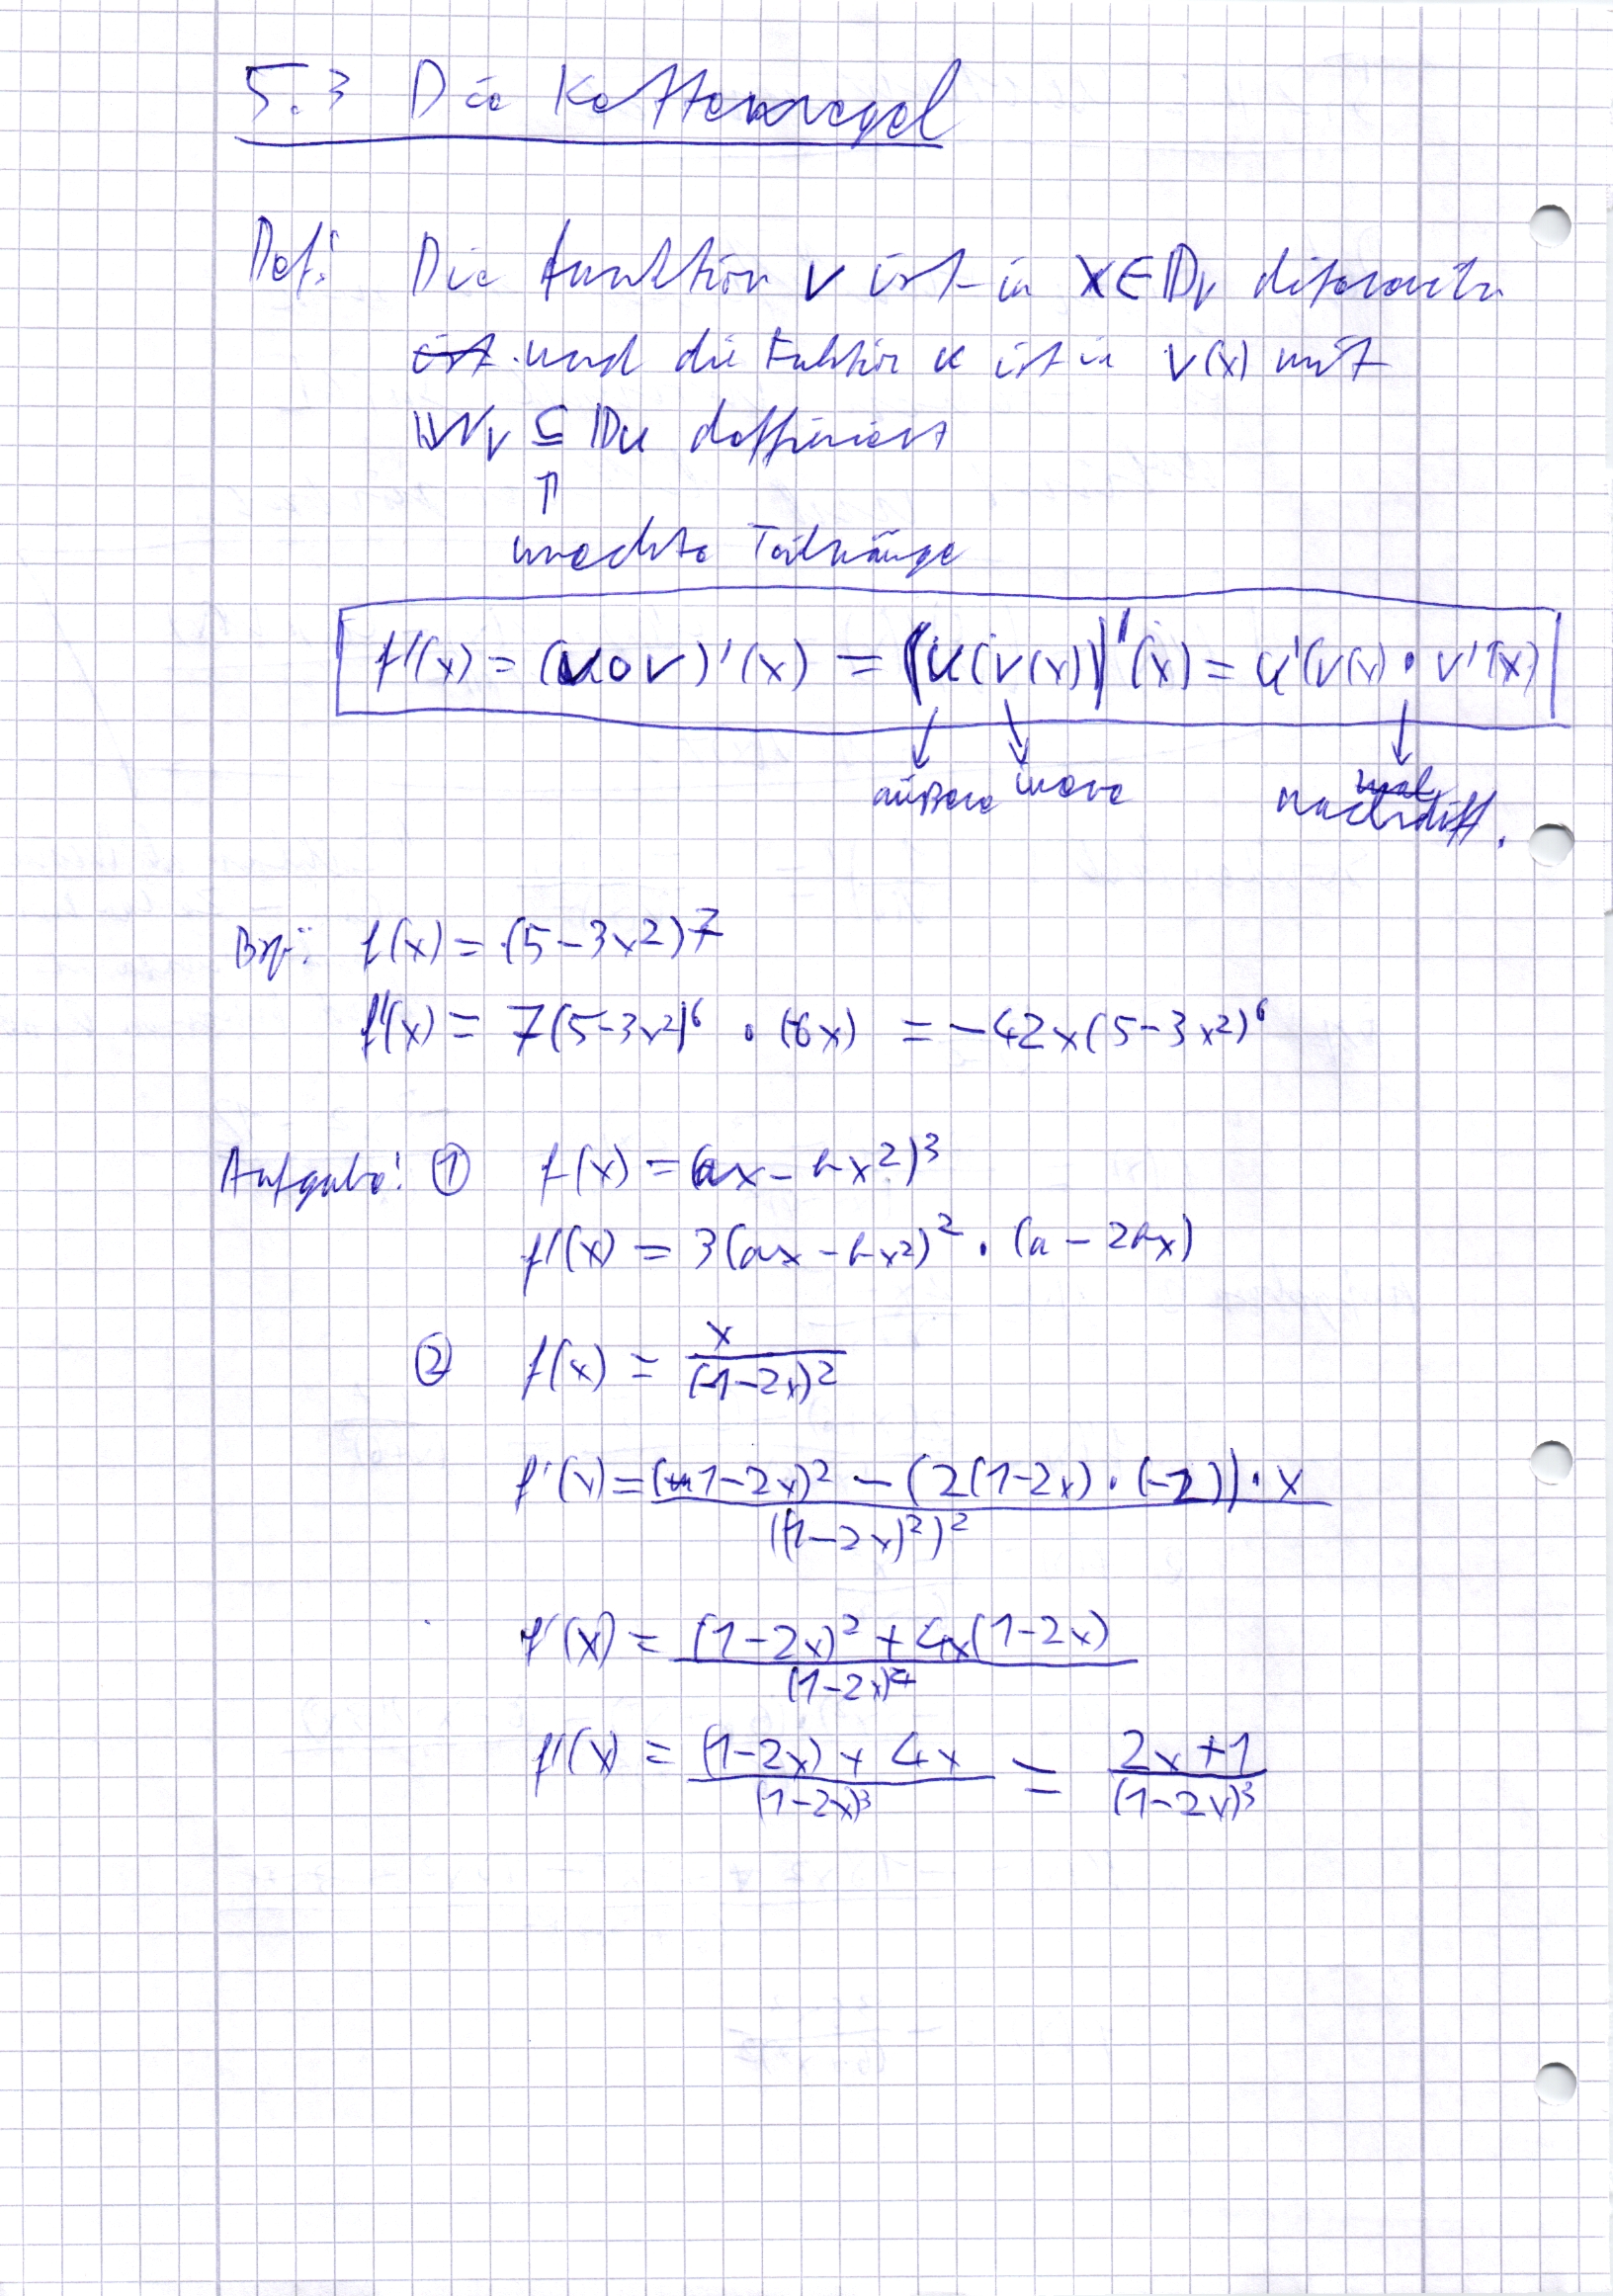 5.3 Die Kettenregel
Def: Die Funktion v ist in x∈𝔻v
ist und die Funktion u ist in v(x) mit
𝕎v ⊆ 𝔻u deffiniert
↑
unechte Teilmänge
f'(x) = (u∘v)'(x) = (u(v(x)))'(x) = u'(v(x) • v'(x)
äußere innere mal
nachdiff.
Bsp: f(x) = (5-3x2)7
f'(x) = 7(5-3x²)⁶ • (-6x) = -42x(5-3x²)⁶
Aufgabe: ① f(x) = (ax-bx²)³
f'(x) = 3(ax-bx²)² • (a-2bx)
② f(x) = x/(1-2x)²
f'(x) = ((1-2x)² - (2(1-2x)•(-2))•x)/((1-2x)²)²
f'(x) = ((1-2x)² + 4x(1-2x))/(1-2x)⁴
f'(x) = ((1-2x) + 4x)/(1-2x)³ = (2x+1)/(1-2x)³